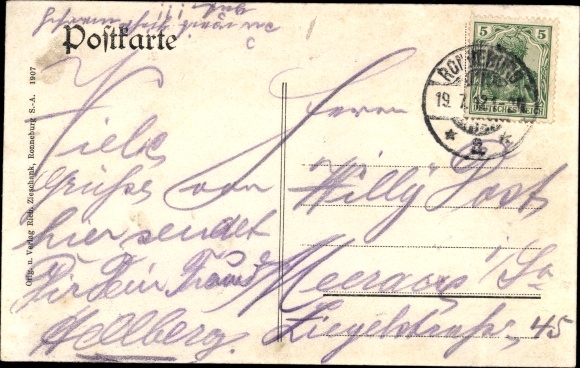 Postkarte
Viele
Grüße von
hier sendet
Dir Dein Freund
Hellberg.
Herrn
Willy Post
Meerane i/Sa
Ziegelstraße 45
Orig. u. Verlag Rich. Zieschank, Ronneburg S.-A. 1907
5 5
DEUTSCHES REICH
RONNEBURG
19. 7.
* a. *